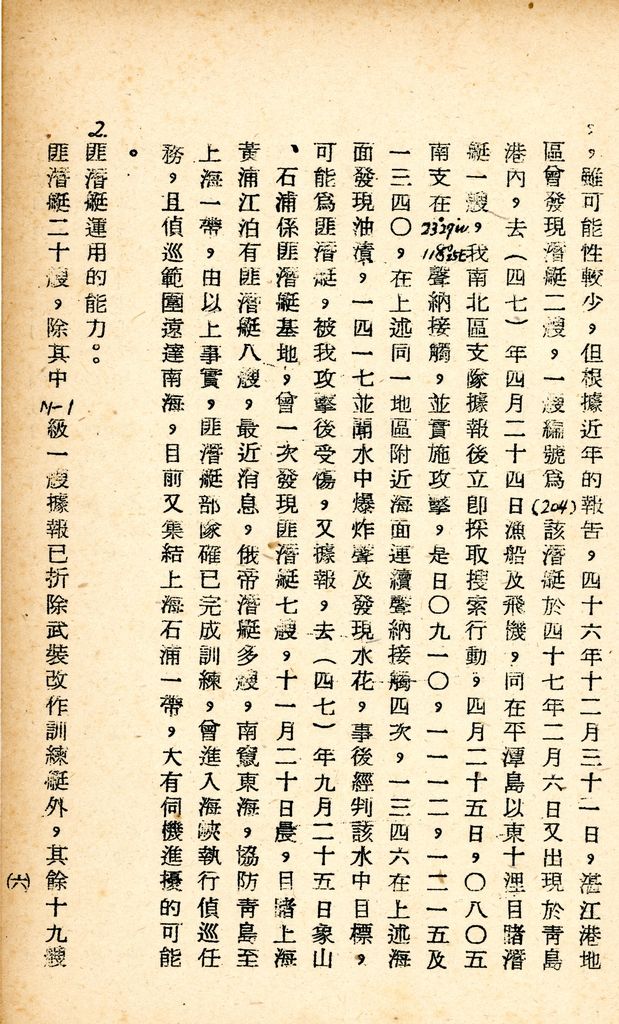 ，雖可能性較少，但根據近年的報告，四十六年十二月三十一日，湛江港地
區曾發現潛艇二艘，一艘編號為(204)該潛艇於四十七年二月六日又出現於靑島
港內，去（四七）年四月二十四日漁船及飛機，同在平潭島以東十浬目睹潛
艇一艘，我南北區支隊據報後立卽採取搜索行動，四月二十五日，〇八〇五
南支在 聲納接觸，並實施攻擊，是日〇九一〇，一一一二，一二一五及
一三四〇，在上述同一地區附近海面連續聲納接觸四次，一三四六在上述海
面發現油漬，一四一七並聞水中爆炸聲及發現水花，事後經判該水中目標，
可能為匪潛艇，被我攻擊後受傷，又據報，去（四七）年九月二十五日象山
、石浦係匪潛艇基地，曾一次發現匪潛艇七艘，十一月二十日晨，目睹上海
黃浦江泊有匪潛艇八艘，最近消息，俄帝潛艇多艘，南竄東海，協防靑島至
上海一帶，由以上事實，匪潛艇部隊確已完成訓練，曾進入海峽執行偵巡任
務，且偵巡範圍遠達南海，目前又集結上海石浦一帶，大有伺機進擾的可能
。
2.匪潛艇運用的能力。。
匪潛艇二十艘，除其中N-1級一艘據報已折除武裝改作訓練艇外，其餘十九艘
（六）